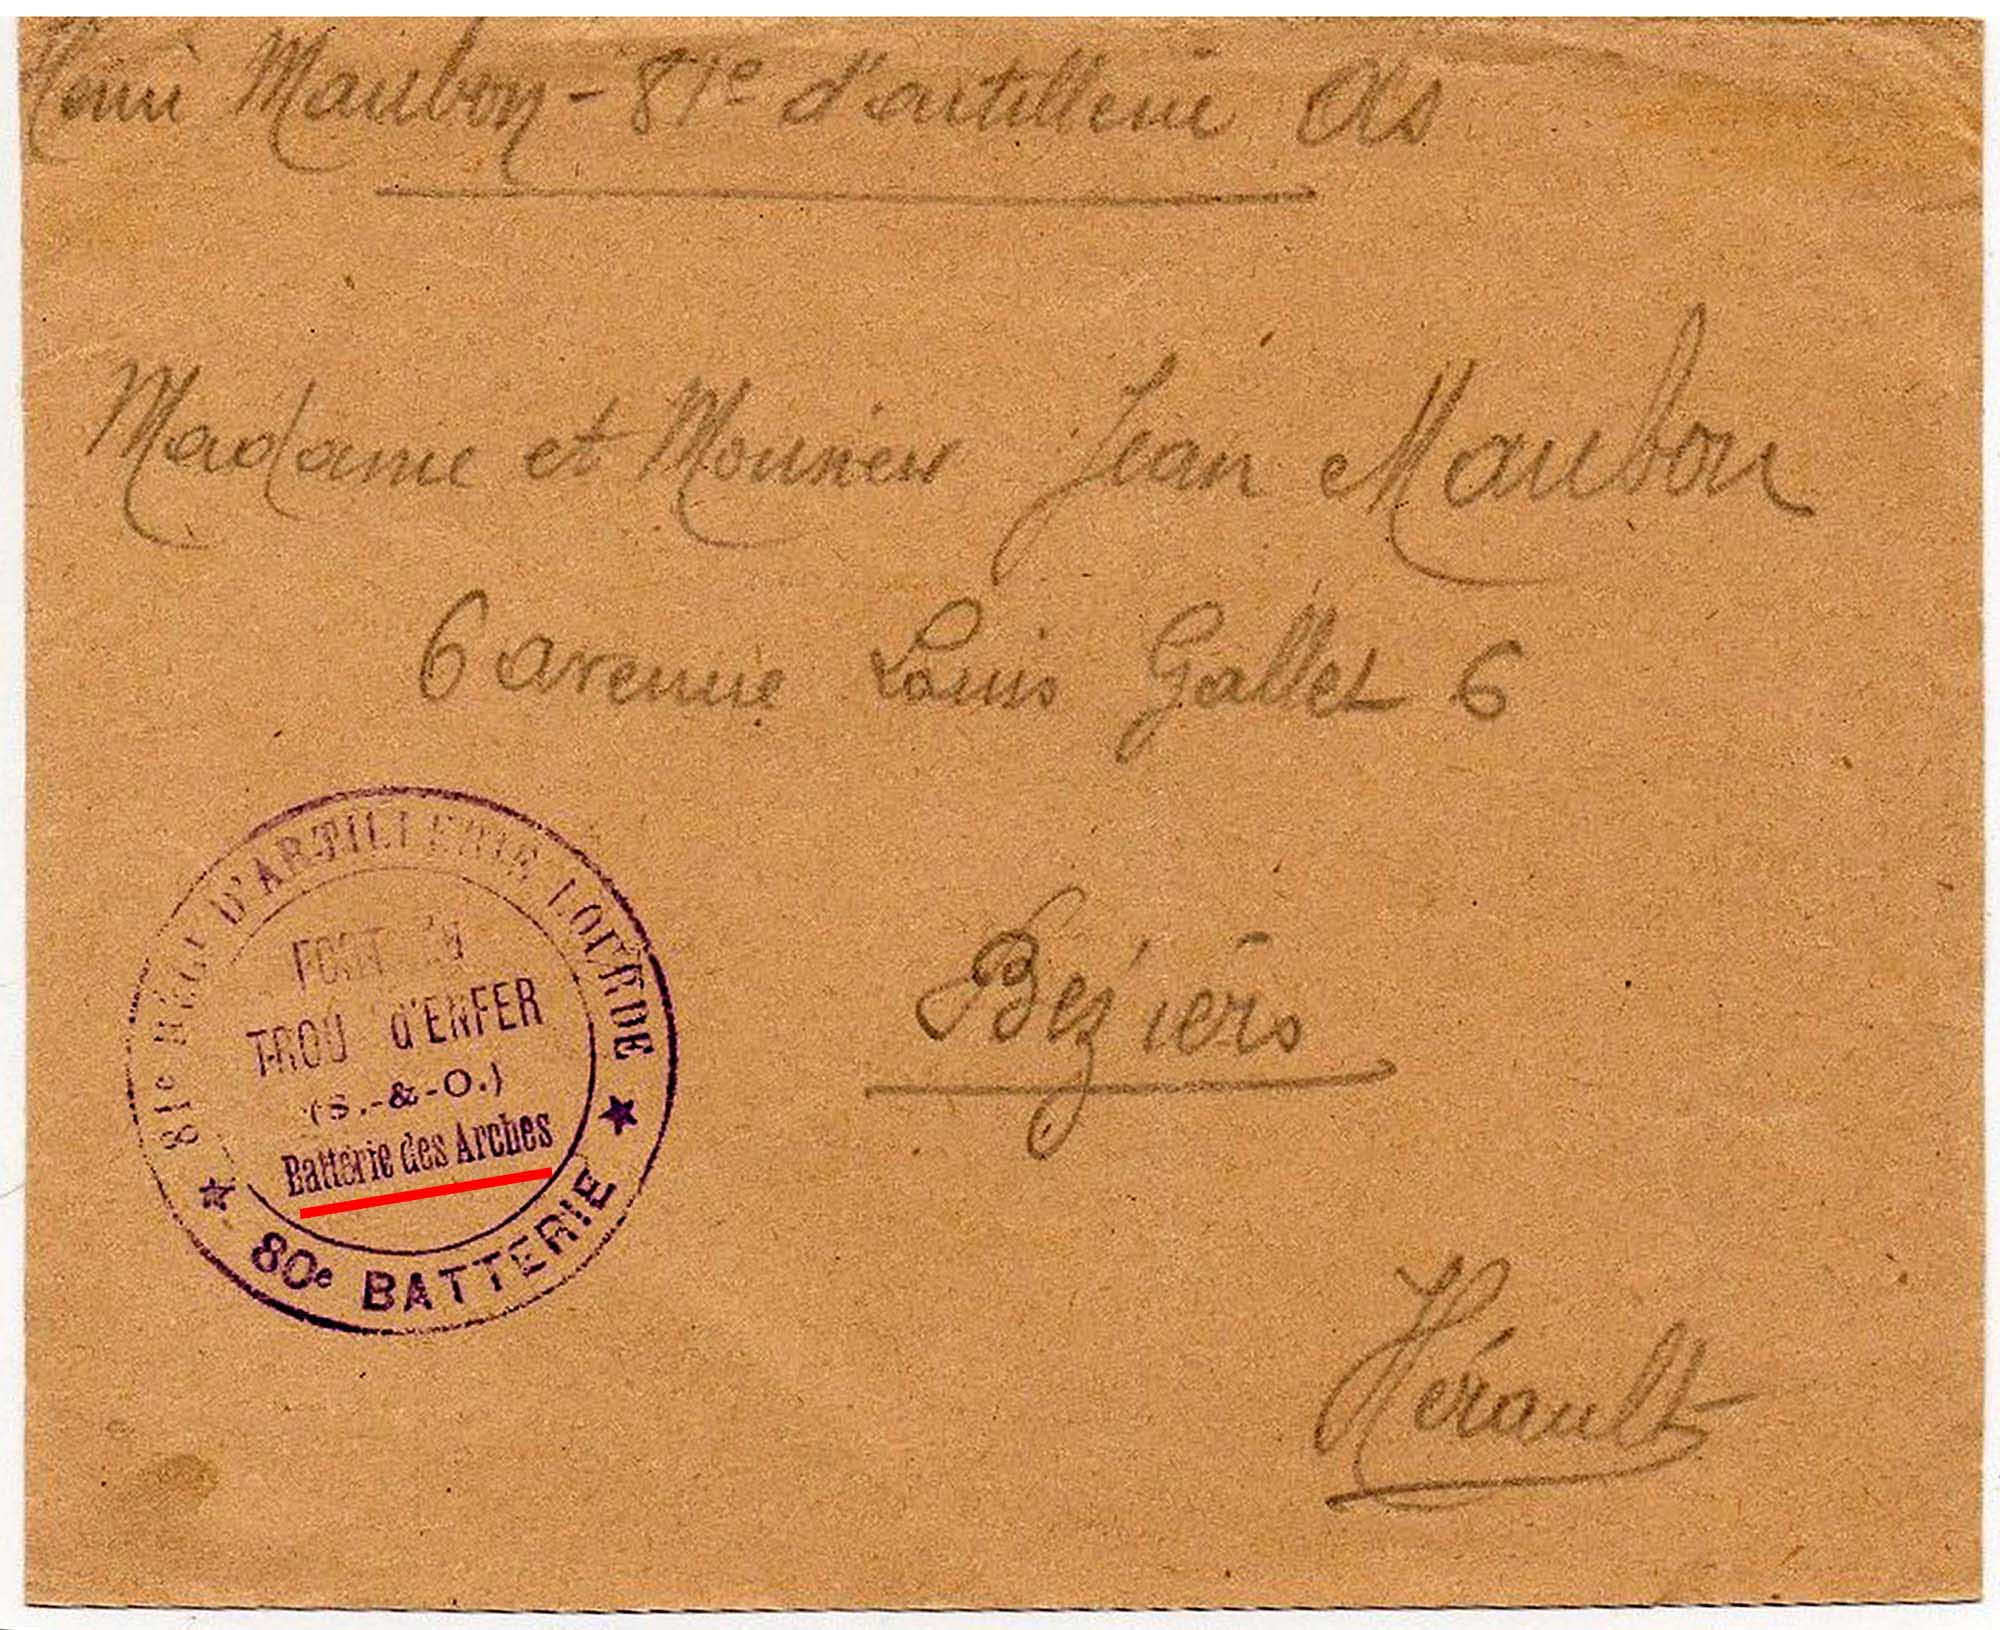 Henri Maubon - 81e d'artillerie AS
Madame et Monsieur Jean Maubon
6 avenue Louis Gallet 6
Béziers
Hérault
81e RÉGt D'ARTILLERIE LOURDE
FORT DU
TROU d'ENFER
(S.-&-O.)
Battérie des Arches
80e BATTERIE